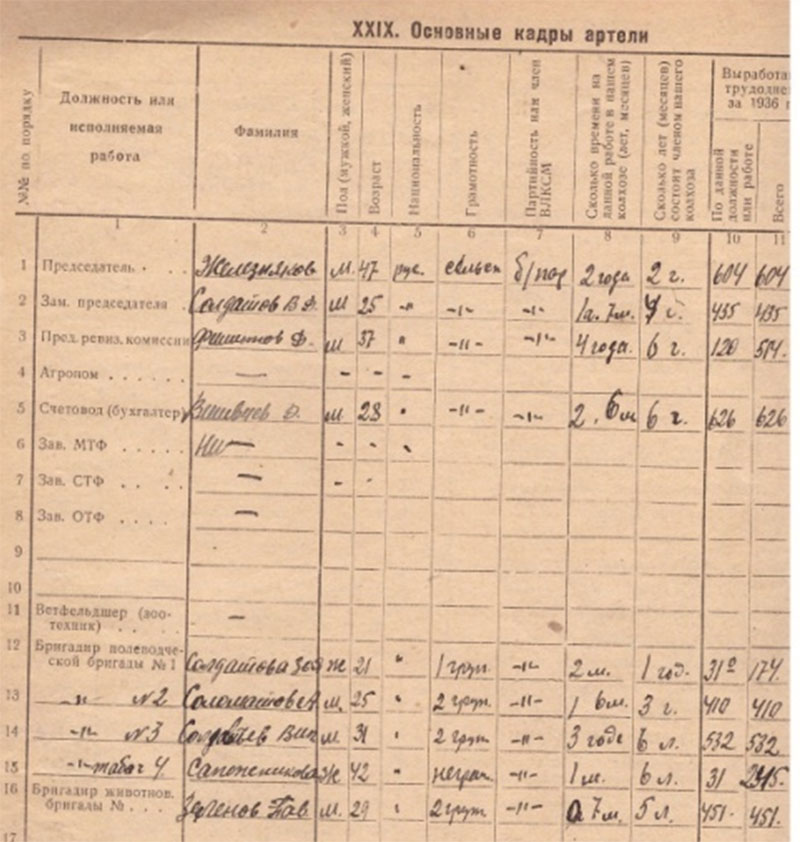 XXIX. Основные кадры артели
№№ по порядку
Должность или исполняемая работа
Фамилия
Пол (мужской, женский)
Возраст
Национальность
Грамотность
Партийность или член ВЛКСМ
Сколько времени на данной работе в нашем колхозе (лет, месяцев)
Сколько лет (месяцев) состоит членом нашего колхоза
Выработа
трудодне
за 1936 г
По данной должности или работе
Всего
1 2 3 4 5 6 7 8 9 10 11
1 Председатель Железняков м. 47 рус. сельск б/пар 2 года 2 г. 604 604
2 Зам. председателя Солдатов В Ф. м 25 -"- -"- -"- 1 г. 7 м. 435 435
3 Пред. ревиз. комиссии Филиппов Ф. м 37 " -"- -"- 4 года. 6 г. 120 514.
4 Агроном — - - -
5 Счетовод (бухгалтер) м. 28 " -"- -"- 2 . 6 м 6 г. 626 626
6 Зав. МТФ — - - -
7 Зав. СТФ — - -
8 Зав. ОТФ —
9
10
11 Ветфельдшер (зоо-
техник) —
12 Бригадир полеводче-
ской бригады № 1 Солдатова Зоя ж 21 " 1 груп. -"- 2 м. 1 год. 174.
13 -"- N2 Соломатов А м. 25 " 2 груп. -"- 1 6 м. 3 г. 410 410
14 -"- N3 м. 31 " 2 груп -"- 3 года 6 л. 532 532
15 -"- табач 4. Сапожникова ж 42 " неграм. -"- 1 м. 6 л. 31
16 Бригадир животнов.
бригады № Зеленов Пав. м. 29 " 2 груп -"- 7 м. 5 л. 451. 451.
17